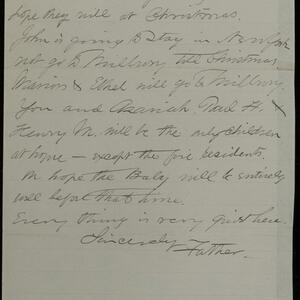 hope they will at Christmas.
John is going to stay in New York
not go to Millbury till Christmas
Marion & Ethel will go to Millbury.
You and Azariah, Paul H. &
Henry M. will be the only children
at home – except the five residents.
We hope the Baby will be entirely
well before that time.
Every thing is very quiet here.
Sincerely
Father.